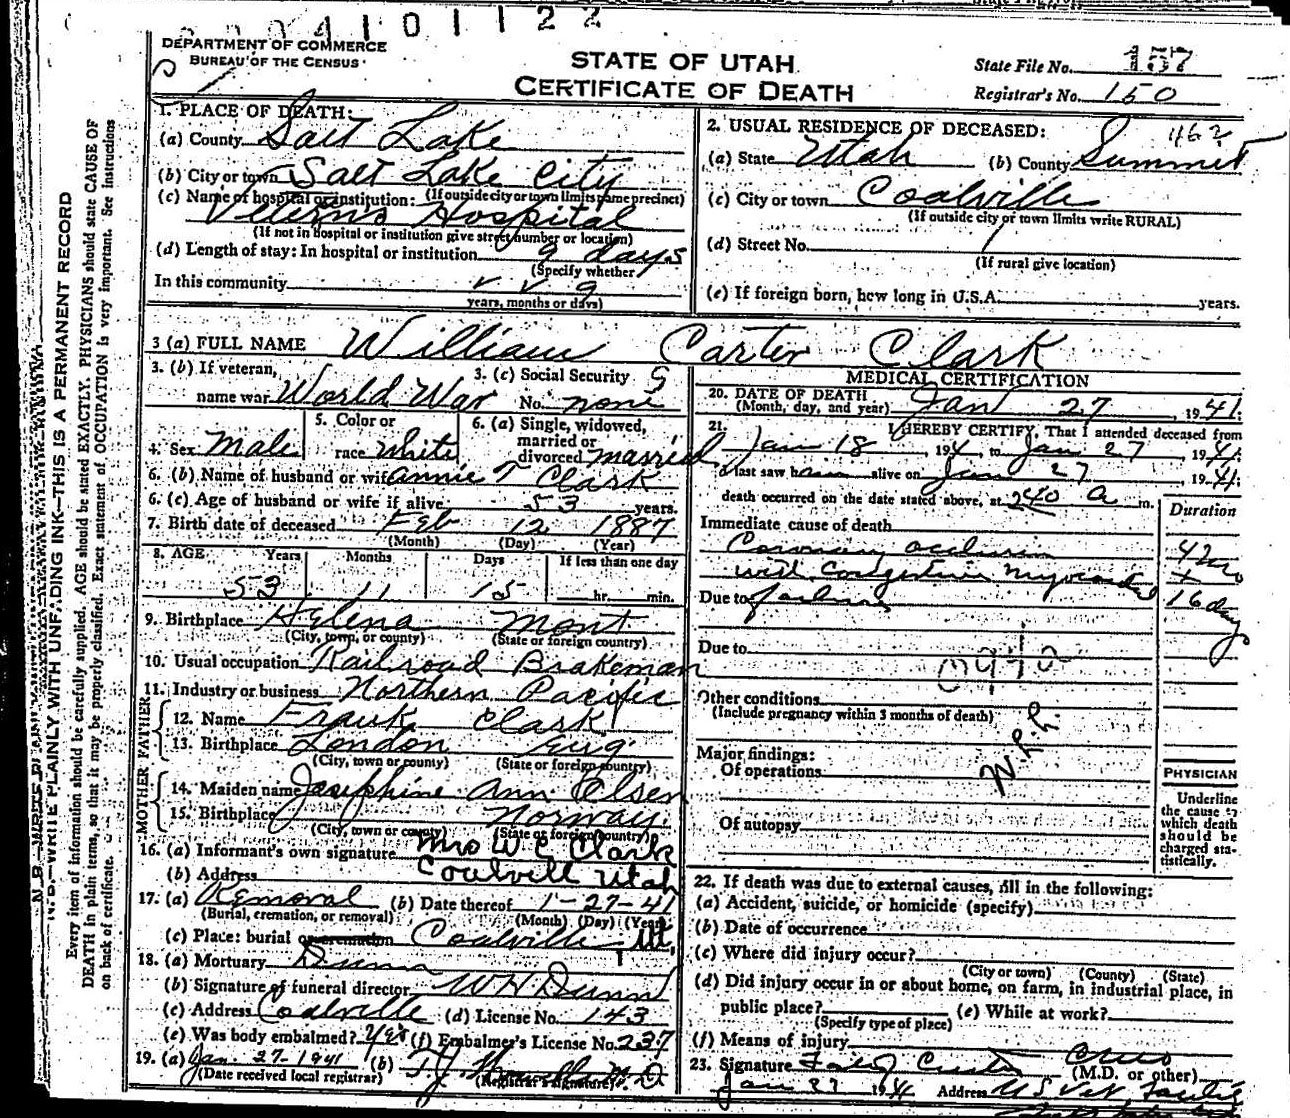 0004101122
DEPARTMENT OF COMMERCE
BUREAU OF THE CENSUS
STATE OF UTAH
CERTIFICATE OF DEATH
State File No. 157
Registrar's No. 150
N. B.—WRITE PLAINLY WITH UNFADING INK—THIS IS A PERMANENT RECORD
Every item of information should be carefully supplied. AGE should be stated EXACTLY. PHYSICIANS should state CAUSE OF
DEATH in plain terms, so that it may be properly classified. Exact statement of OCCUPATION is very important. See instructions
on back of certificate.
1. PLACE OF DEATH:
(a) County Salt Lake
(b) City or town Salt Lake City
(If outside city or town limits name precinct)
(c) Name of hospital or institution:
Veterns Hospital
(If not in hospital or institution give street number or location)
(d) Length of stay: In hospital or institution 9 days
(Specify whether
In this community 9
years, months or days)
2. USUAL RESIDENCE OF DECEASED: 462
(a) State Utah (b) County Summit
(c) City or town Coalville
(If outside city or town limits write RURAL)
(d) Street No.
(If rural give location)
(e) If foreign born, how long in U.S.A. years.
3 (a) FULL NAME William Carter Clark
3. (b) If veteran, name war World War
3. (c) Social Security No. none
4. Sex Male
5. Color or race White
6. (a) Single, widowed, married or divorced married
6. (b) Name of husband or wife Annie T Clark
6. (c) Age of husband or wife if alive 53 years.
7. Birth date of deceased Feb 12 1887
(Month) (Day) (Year)
8. AGE Years Months Days If less than one day
53 11 15 hr. min.
9. Birthplace Helena Mont
(City, town, or county) (State or foreign country)
10. Usual occupation Railroad Brakeman
11. Industry or business Northern Pacific
FATHER
12. Name Frank Clark
13. Birthplace London Eng
(City, town or county) (State or foreign country)
MOTHER
14. Maiden name Josephine Ann Olsen
15. Birthplace Norway
(City, town or county) (State or foreign country)
16. (a) Informant's own signature Mrs W C Clark
(b) Address Coalvill Utah
17. (a) Removal (b) Date thereof 1-27-41
(Burial, cremation, or removal) (Month) (Day) (Year)
(c) Place: burial or cremation Coalville Ut,
18. (a) Mortuary Dunn
(b) Signature of funeral director W H Dunn
(c) Address Coalville (d) License No. 143
(e) Was body embalmed? Yes (f) Embalmer's License No. 237
19. (a) Jan. 27-1941 (b) M. D
(Date received local registrar) (Registrar's signature)
MEDICAL CERTIFICATION
20. DATE OF DEATH
(Month, day, and year) Jan 27, 1941.
21. I HEREBY CERTIFY, That I attended deceased from
Jan 18, 194, to Jan 27, 1941;
I last saw him alive on Jan 27 1941;
death occurred on the date stated above, at 240 a m.
Duration
Immediate cause of death
Coronary occlusion 42
with congestive myocardial
Due to failure 16 days
Due to
0940
Other conditions
(Include pregnancy within 3 months of death)
Major findings:
Of operations
Of autopsy
PHYSICIAN
Underline
the cause to
which death
should be
charged sta-
tistically.
22. If death was due to external causes, fill in the following:
(a) Accident, suicide, or homicide (specify)
(b) Date of occurrence
(c) Where did injury occur?
(City or town) (County) (State)
(d) Did injury occur in or about home, on farm, in industrial place, in
public place? (e) While at work?
(Specify type of place)
(f) Means of injury
23. Signature
(M.D. or other)
Jan 27 1941 Address U S Vet.